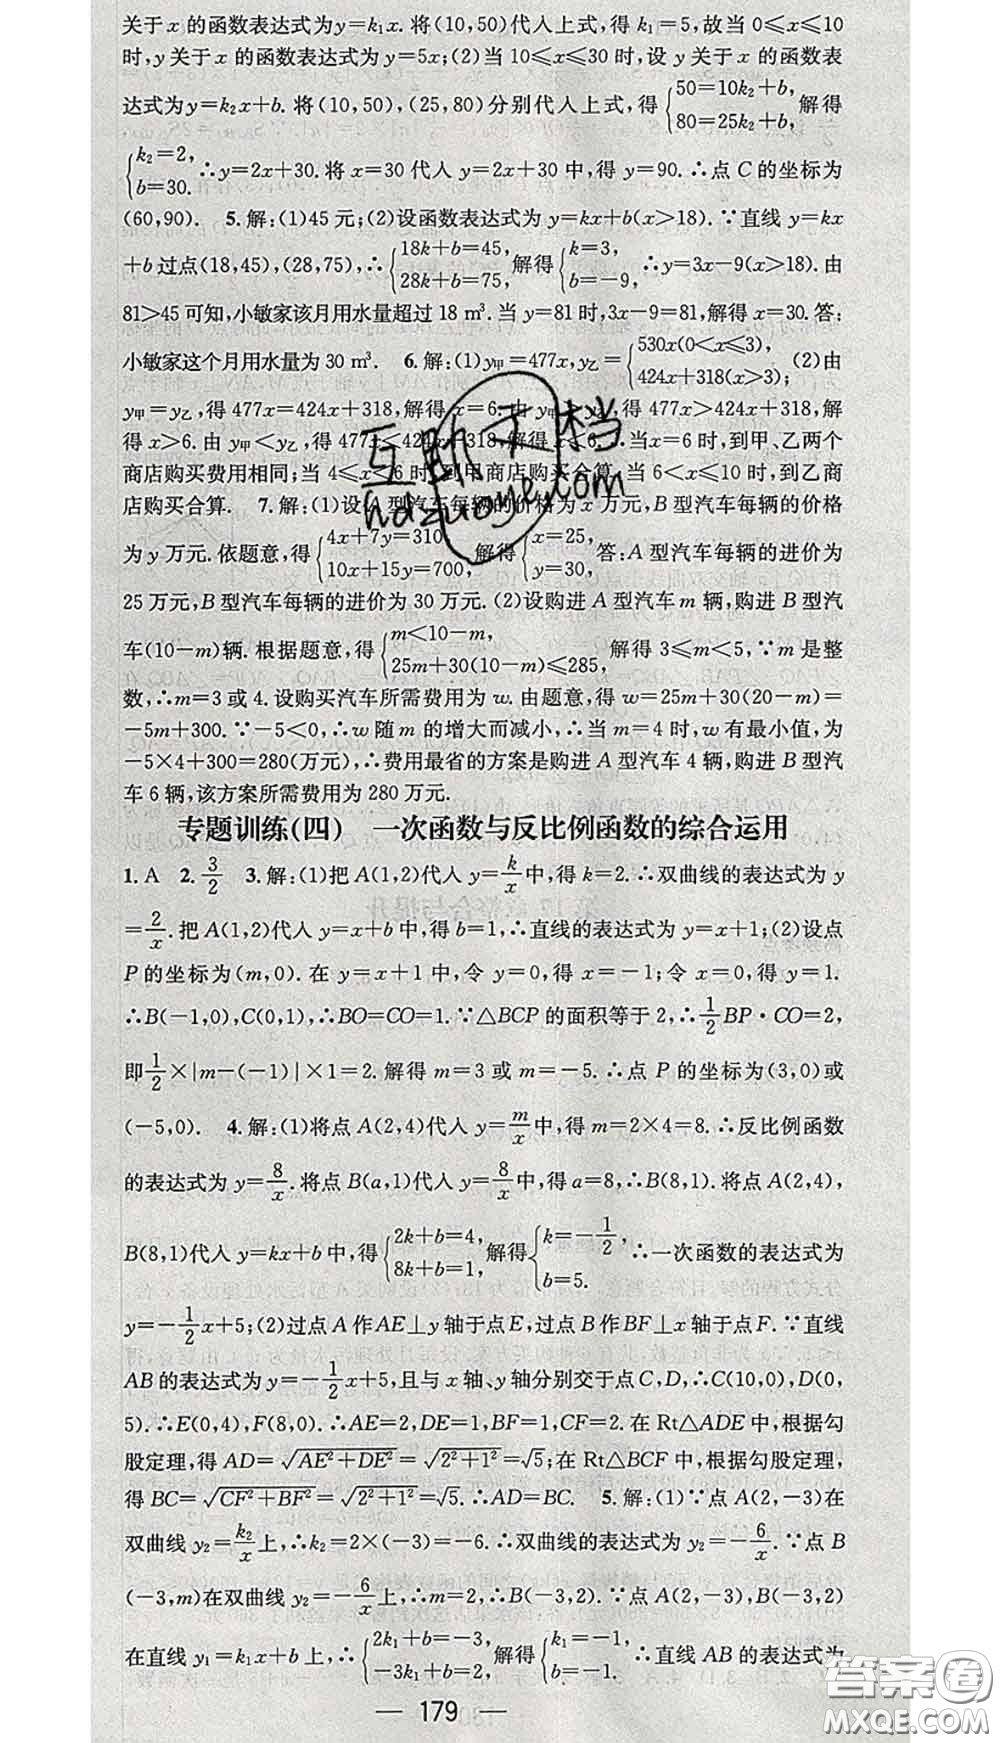 关于 x 的函数表达式为y=k₁x. 将(10,50)代入上式,得 k₁=5,故当 0≤x≤10
时,y 关于 x 的函数表达式为 y=5x;(2)当 10≤x≤30 时,设 y 关于 x 的函数表
达式为y=k₂x+b. 将(10,50),(25,80)分别代入上式,得{50=10k₂+b, 80=25k₂+b, 解得
{k₂=2, b=30. ∴y=2x+30. 将 x=30 代入 y=2x+30 中,得 y=90. ∴点 C 的坐标为
(60,90). 5. 解:(1)45 元;(2)设函数表达式为 y=kx+b(x>18). ∵直线 y=kx
+b过点(18,45),(28,75),∴{18k+b=45, 28k+b=75, 解得{k=3, b=-9, ∴y=3x-9(x>18). 由
81>45 可知,小敏家该月用水量超过 18 m³. 当 y=81 时,3x-9=81,解得 x=30. 答:
小敏家这个月用水量为 30 m³. 6. 解:(1)y甲=477x,y乙={530x(0<x≤3), 424x+318(x>3); (2)由
y甲=y乙,得 477x=424x+318,解得 x=6. 由 y甲>y乙,得 477x>424x+318,解得
x>6. 由 y甲<y乙,得 477x<424x+318,解得 x<6. ∴当x=6 时,到甲、乙两个
商店购买费用相同;当 4≤x<6 时,到甲商店购买合算. 当 6<x≤10 时,到乙商
店购买合算. 7. 解:(1)设A 型汽车每辆的价格为 x 万元,B 型汽车每辆的价格
为 y 万元. 依题意,得{4x+7y=310, 10x+15y=700, 解得{x=25, y=30, 答:A 型汽车每辆的进价为
25 万元,B 型汽车每辆的进价为 30 万元. (2)设购进 A 型汽车 m 辆,购进 B 型汽
车(10-m)辆. 根据题意,得{m<10-m, 25m+30(10-m)≤285, 解得 3≤m<5,∵m 是整
数,∴m=3 或 4. 设购买汽车所需费用为 w. 由题意,得 w=25m+30(20-m)=
-5m+300. ∵-5<0,∴w 随 m 的增大而减小,∴当 m=4 时,w 有最小值,为
-5×4+300=280(万元),∴费用最省的方案是购进 A 型汽车 4 辆,购进 B 型汽
车 6 辆,该方案所需费用为 280 万元.
专题训练(四) 一次函数与反比例函数的综合运用
1. A 2. 3/2 3. 解:(1)把 A(1,2)代入 y=k/x中,得 k=2. ∴双曲线的表达式为 y
=2/x. 把 A(1,2)代入 y=x+b 中,得 b=1,∴直线的表达式为 y=x+1;(2)设点
P 的坐标为(m,0). 在 y=x+1 中,令 y=0,得 x=-1;令 x=0,得 y=1.
∴B(-1,0),C(0,1),∴BO=CO=1. ∵△BCP 的面积等于 2,∴1/2BP·CO=2,
即1/2×|m-(-1)|×1=2. 解得 m=3 或 m=-5. ∴点 P 的坐标为(3,0)或
(-5,0). 4. 解:(1)将点 A(2,4)代入 y=m/x中,得 m=2×4=8. ∴反比例函数
的表达式为 y=8/x. 将点 B(a,1)代入 y=8/x中,得 a=8,∴B(8,1). 将点 A(2,4),
B(8,1)代入 y=kx+b 中,得{2k+b=4, 8k+b=1, 解得{k=-1/2, b=5. ∴一次函数的表达式为
y=-1/2x+5;(2)过点 A 作AE⊥y 轴于点E,过点 B 作BF⊥x 轴于点F. ∵直线
AB 的表达式为 y=-1/2x+5,且与 x 轴、y 轴分别交于点C,D,∴C(10,0),D(0,
5). ∴E(0,4),F(8,0). ∴AE=2,DE=1,BF=1,CF=2. 在 Rt△ADE 中,根据勾
股定理,得 AD=√(AE²+DE²)=√(2²+1²)=√5;在 Rt△BCF 中,根据勾股定理,
得 BC=√(CF²+BF²)=√(2²+1²)=√5. ∴AD=BC. 5. 解:(1)∵点 A(2,-3)在
双曲线 y₂=k₂/x上,∴k₂=2×(-3)=-6. ∴双曲线的表达式为 y₂=-6/x. ∵点 B
(-3,m)在双曲线 y₂=-6/x上,∴m=2,∴B(-3,2). ∵点 A(2,-3),B(-3,2)
在直线 y₁=k₁x+b 上,∴{2k₁+b=-3, -3k₁+b=2, 解得{k₁=-1, b=-1. ∴直线 AB 的表达式为
— 179 —
互助文档
hdzuoye.com
答案卷
MXQE.COM